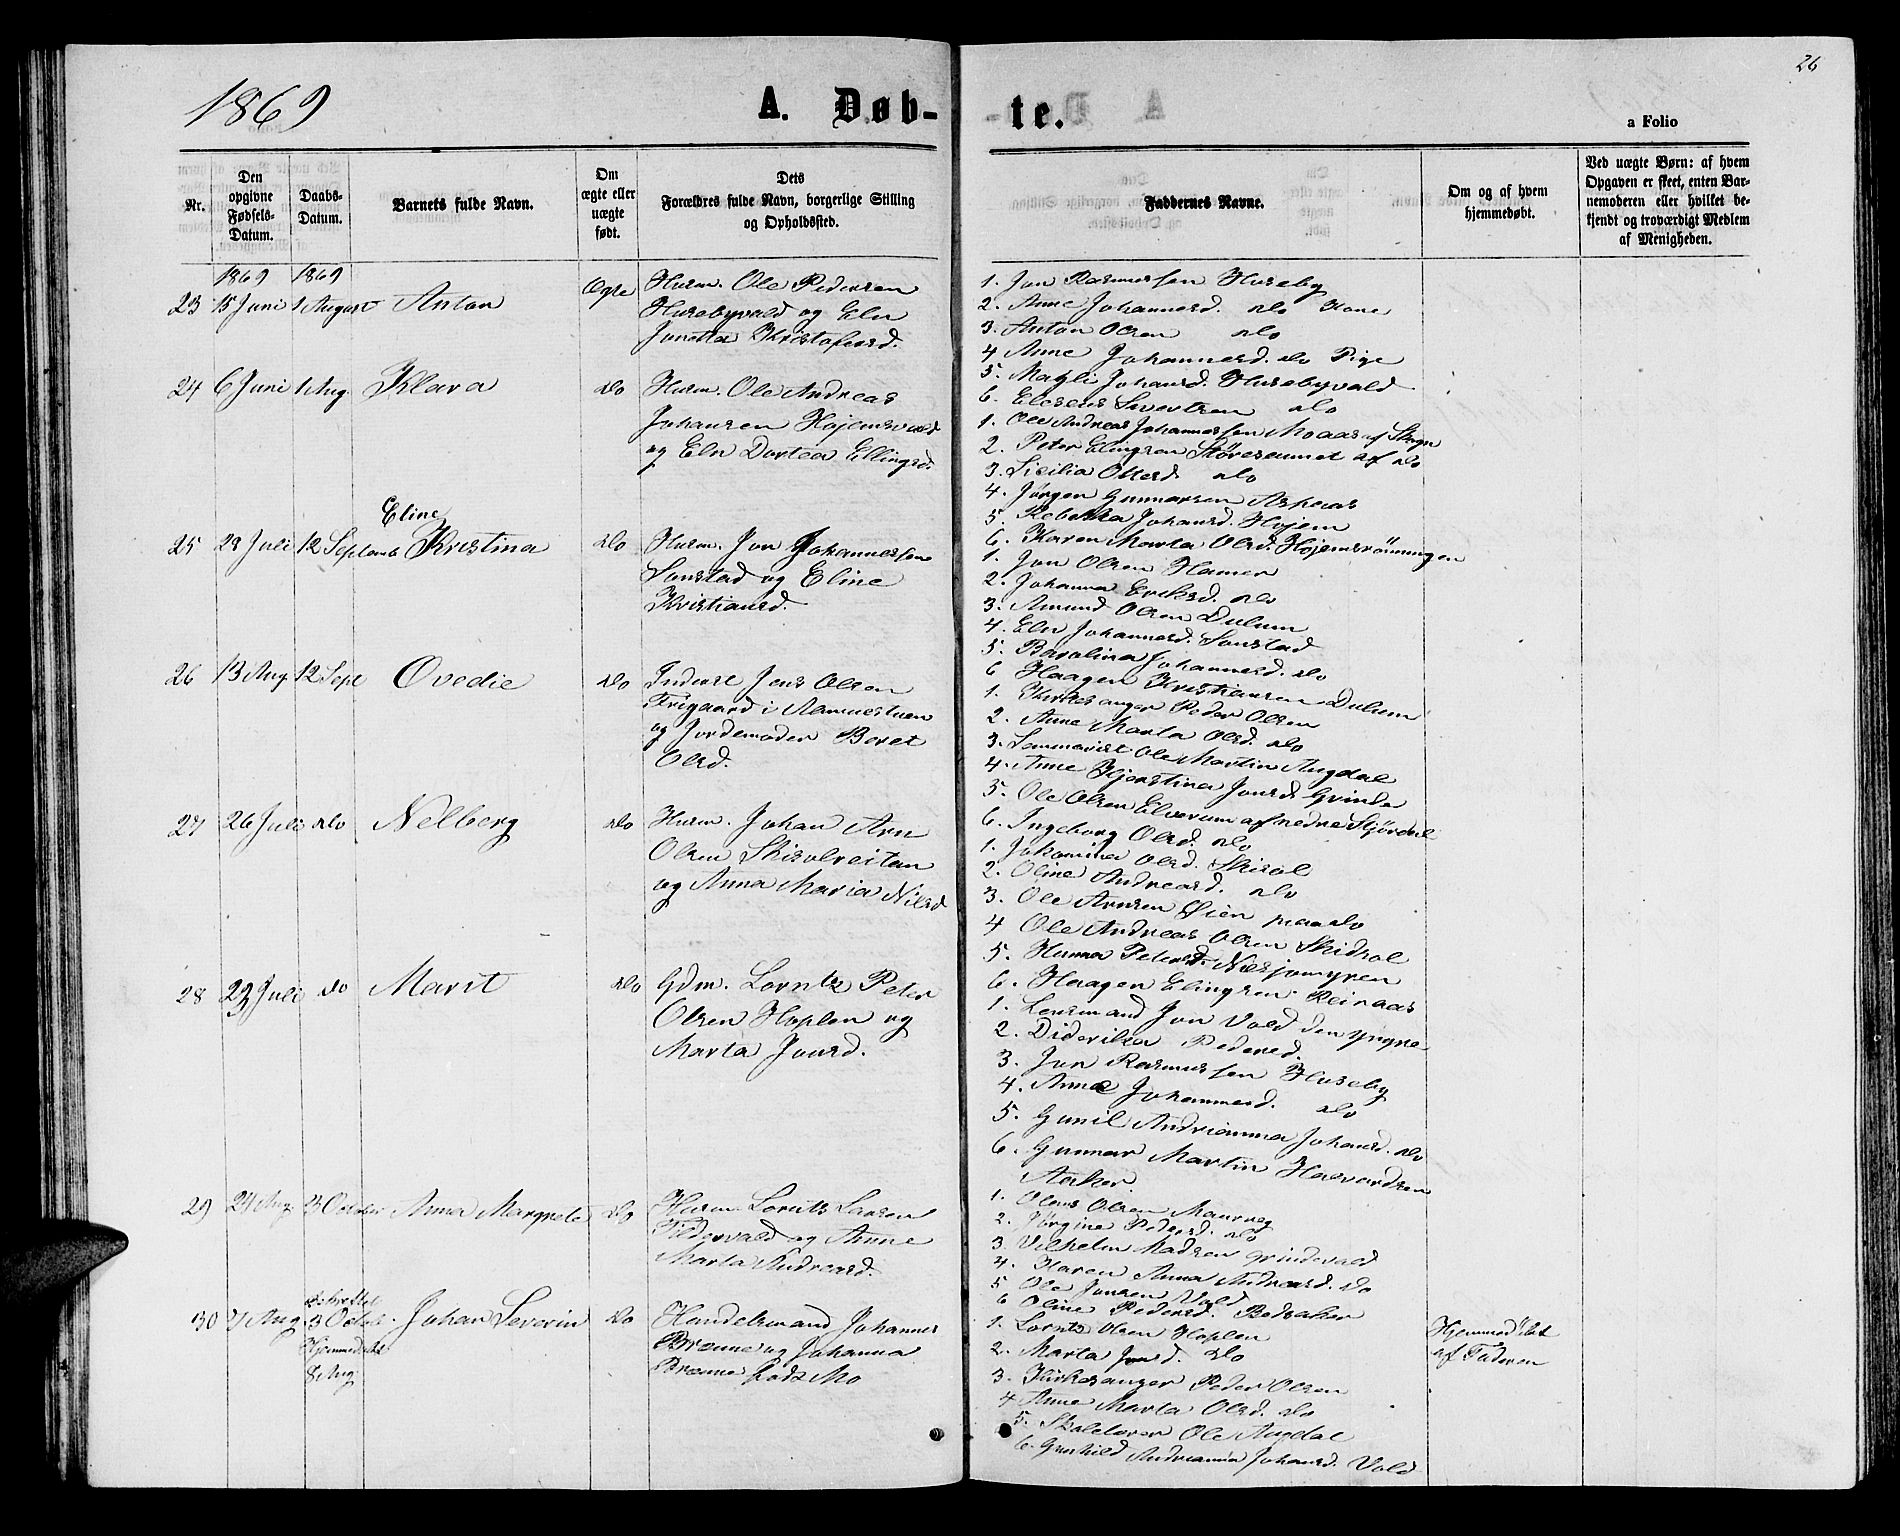 26
1869
A. Døb-
te.
a Folio
Nr.
Den
opgivne
Fødsels-
Datum.
Daabs-
Datum.
Barnets fulde Navn.
Om
ægte eller
uægte
født.
Dets
Forældres fulde Navn, borgerlige Stilling
og Opholdssted.
Faddernes Navne.
Om og af hvem
hjemmedøbt.
Ved uægte Børn: af hvem
Opgaven er skeet, enten Bar-
nemoderen eller hvilket be-
kjendt og troværdigt Medlem
af Menigheden.
1869 1869
23 15 Juni 1 August Anton Ægte
Husm. Ole Pedersen
Husebyvald og Eln
Jonetta Kristofersd.
1. Jon Rasmussen Huseby
2. Anne Johannesd. do Kone
3. Anton Olsen do
4 Anne Johannesd. do Pige
5. Mahli Johansd. Husebyvald
6. Eleseus Sivertsen do
24 6 Juni 1 Aug. Klara do
Husm. Ole Andreas
Johansen Højemsvald
og Eln Dortea Ellingsd.
1. Ole Andreas Johannessen Moaas af
2. Peter Elingsen Störesunnet af do
3. Sicilia Olsd. do
4. Jørgen Gunnarsen Aspeaas
5. Rebekka Johansd. Hojem
6. Karen Marta Olsd. Hojemsrönningen
25 28 Juli 12 Septemb
Eline
Kristina do
Husm. Jon Johannessen
Sonstad og Eline
Kristiansd.
1. Jon Olsen Hamer
2. Johanna Eriksd. do
3. Amund Olsen Dulum
4. Eln Johannesd. Sonstad
5. Baralina Johannesd. do
6 Haagen Kristiansen Dulum
26 13 Aug. 12 Sept Ovedie do
Inderst Jens Olsen
Trigaard i
og Jordemoder Beret
Olsd.
1. Kirkesanger Peder Olsen
2. Anne Marta Olsd. do
3. Ole Martin Augdal
4. Anne Kjerstina Jonsd. Grinda
5. Ole Olsen Elverum af nedre Stjørdal
6. Ingeborg Olsd. do
27 26 Juli do Nelberg do
Husm. Johan Arn
Olsen Skisolreitan
og Anna Maria Nilsd
1. Jokomina Olsd. Skisol
2. Oline Andreasd. do
3. Ole Arnsen Øien paa do
4 Ole Andreas Olsen Skidsol
5. Hanna Petersd. Nesjamyren
6. Haagen Elingsen Reinaas
28 23 Juli do Marit do
Gdm. Lorntz Peter
Olsen Hoplen og
Marta Jonsd.
1. Lensmand Jon Vold den yngre
2. Diderikka Pedersd.
3. Jon Rasmussen Huseby
4. Anne Johannesd. do
5. Gunil Andrianna Johansd. do
6. Gunnar Martin Havardsen
Aaker
29 24 Aug. 3 October Anna Margrete do
Husm. Lornts Larsen
Fildervald og Anne
Marta Andreasd.
1. Olaus Olsen Maurveg
2. Jørgine Pedersd. do
3. Vilhelm Madsen Grindevald
4. Karen Anna Andreasd. do
5 Ole Jonsen Vold
6 Oline Pedersd. Bedsaker
30 7 Aug.
3 Octob.
Hjemmedøbt
8 Aug.
Johan Severin do
Handelsmand Johannes
Brænne og Johanna
Brænne født Mo
1. Lornts Olsen Hoplen
2. Marta Jonsd. do
3. Kirkesanger Peder Olsen
4 Anne Marta Olsd. do
5. Skolelærer Ole Augdal
6. Gunhild Andrianna Johansd. Vold
Hjemmedöbt
af Faderen